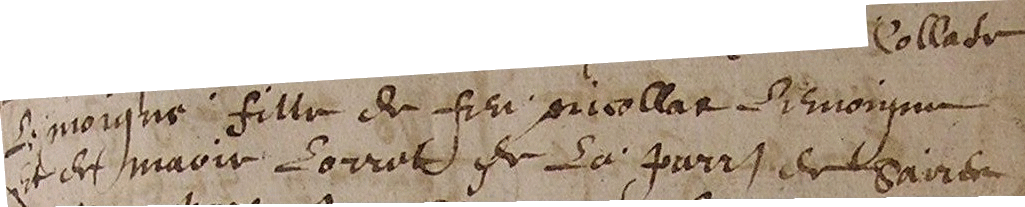 Collade
Limoigne fille de feu nicollas Limoigne
et de marie Corret de La parr de Sainte